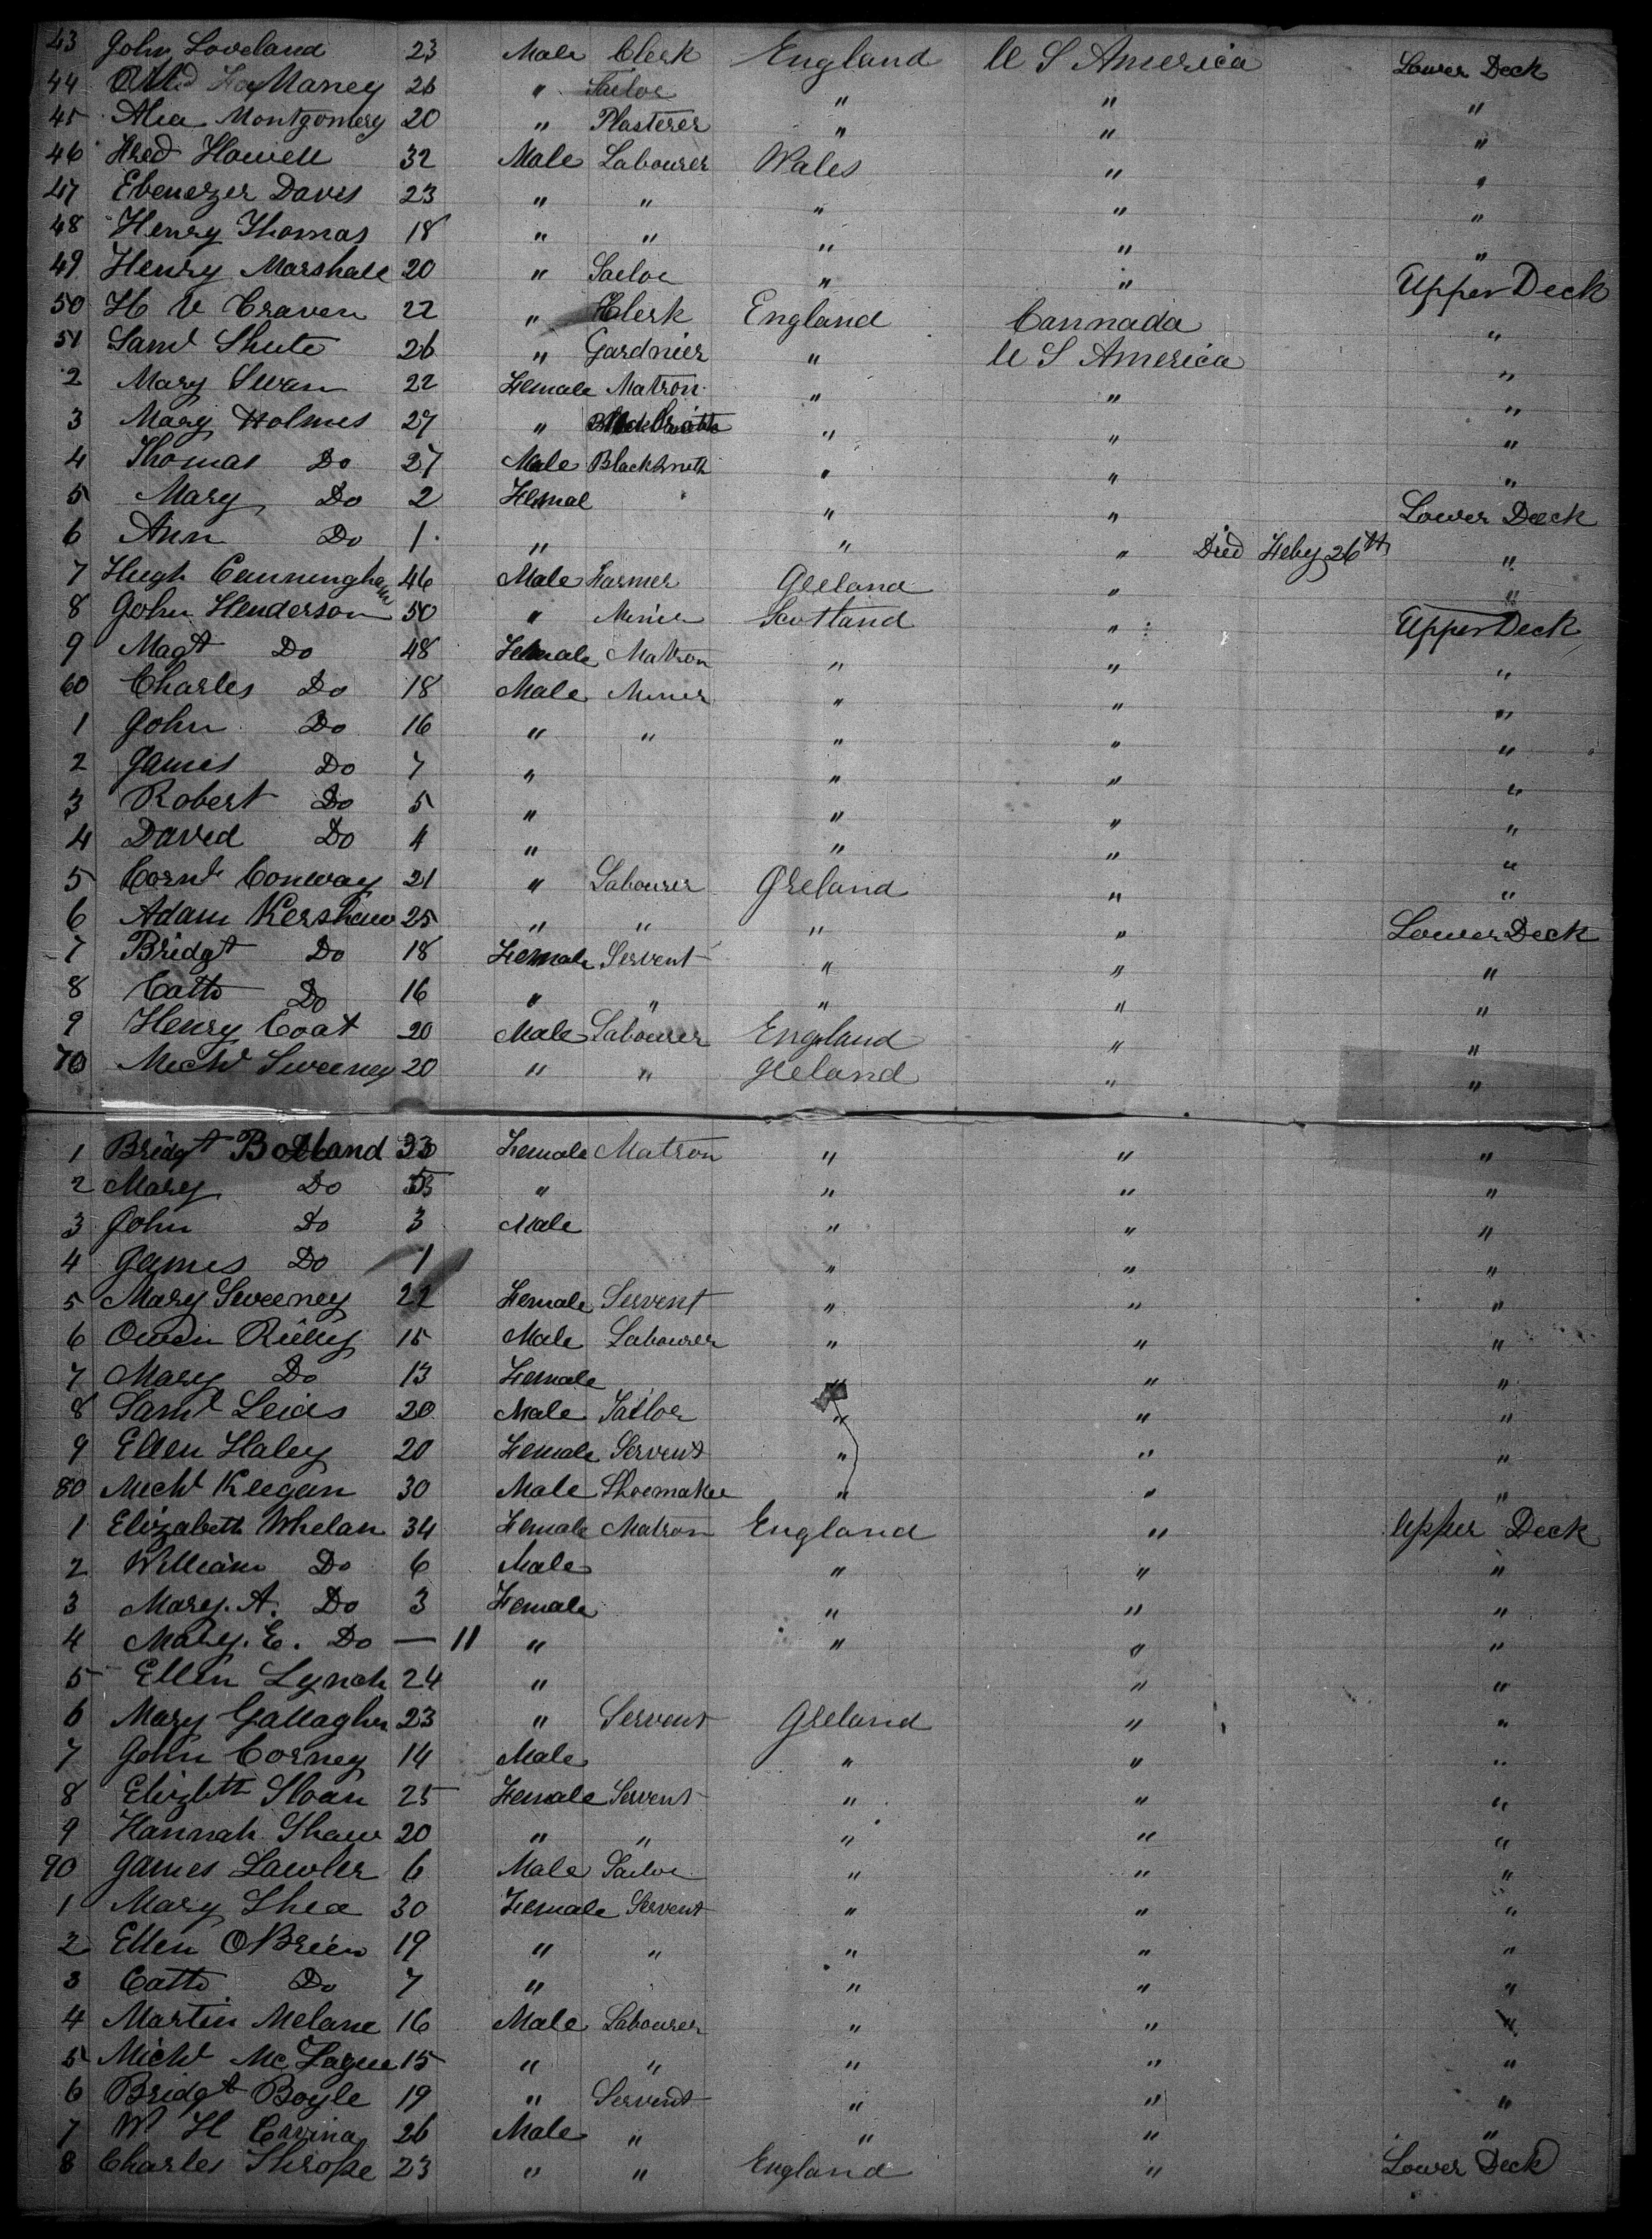 43 John Loveland 23 Male Clerk England U S America Lower Deck
44 Maney 26 " Tailor " " "
45 Montgomery 20 " Plasterer " " "
46 Fred Howell 32 Male Labourer Wales " "
47 Ebenezer Davis 23 " " " " "
48 Henry Thomas 18 " " " " "
49 Henry Marshall 20 " Sailor " " Upper Deck
50 H V Craven 22 " Clerk England Cannada "
51 Saml Shute 26 " Gardnier " U S America "
2 Mary Swan 22 Female Matron " " "
3 Mary Holmes 27 " " " "
4 Thomas Do 27 Male Blacksmith " " "
5 Mary Do 2 Femal " " Lower Deck
6 Ann Do 1 " " " Died Feby 26th "
7 Hugh Cunningham 46 Male Farmer Ireland " "
8 John Henderson 50 " Miner Scotland " Upper Deck
9 Magt Do 48 Female Matron " " "
60 Charles Do 18 Male Miner " " "
1 John Do 16 " " " " "
2 James Do 7 " " " "
3 Robert Do 5 " " " "
4 David Do 4 " " " "
5 Cornl Conway 21 " Labourer Ireland " "
6 Adam Kershaw 25 " " " " Lower Deck
7 Bridgt Do 18 Female Servent " " "
8 Catth Do 16 " " " " "
9 Henry Coat 20 Male Labourer England " "
70 Michl Sweeney 20 " " Ireland " "
1 Bridgt 33 Female Matron " " "
2 Mary Do 5 " " " "
3 John Do 3 Male " " "
4 James Do 1 " " "
5 Mary Sweeney 22 Female Servent " " "
6 Owen Reilly 15 Male Labourer " " "
7 Mary Do 13 Female " " "
8 Saml 20 Male Tailor " " "
9 Ellen Haley 20 Female Servent " " "
80 Michl Keegan 30 Male Shoemaker " " "
1 Elizabeth Whelan 34 Female Matron England " Upper Deck
2 William Do 6 Male " " "
3 Mary. A. Do 3 Female " " "
4 Mary. E. Do — 11 " " " "
5 Ellen Lynch 24 " " "
6 Mary Gallagher 23 " Servent Ireland " "
7 John Corney 14 Male " " "
8 Elizbth Sloan 25 Female Servent " " "
9 Hannah Shaw 20 " " " " "
90 James Lawler 6 Male Sailor " " "
1 Mary Shea 30 Female Servent " " "
2 Ellen OBrien 19 " " " " "
3 Catth Do 7 " " " "
4 Martin Melane 16 Male Labourer " " "
5 Michl Mc Tague 15 " " " " "
6 Bridgt Boyle 19 " Servent " " "
7 W H 26 Male " " " "
8 Charles Thrope 23 " " England " Lower Deck